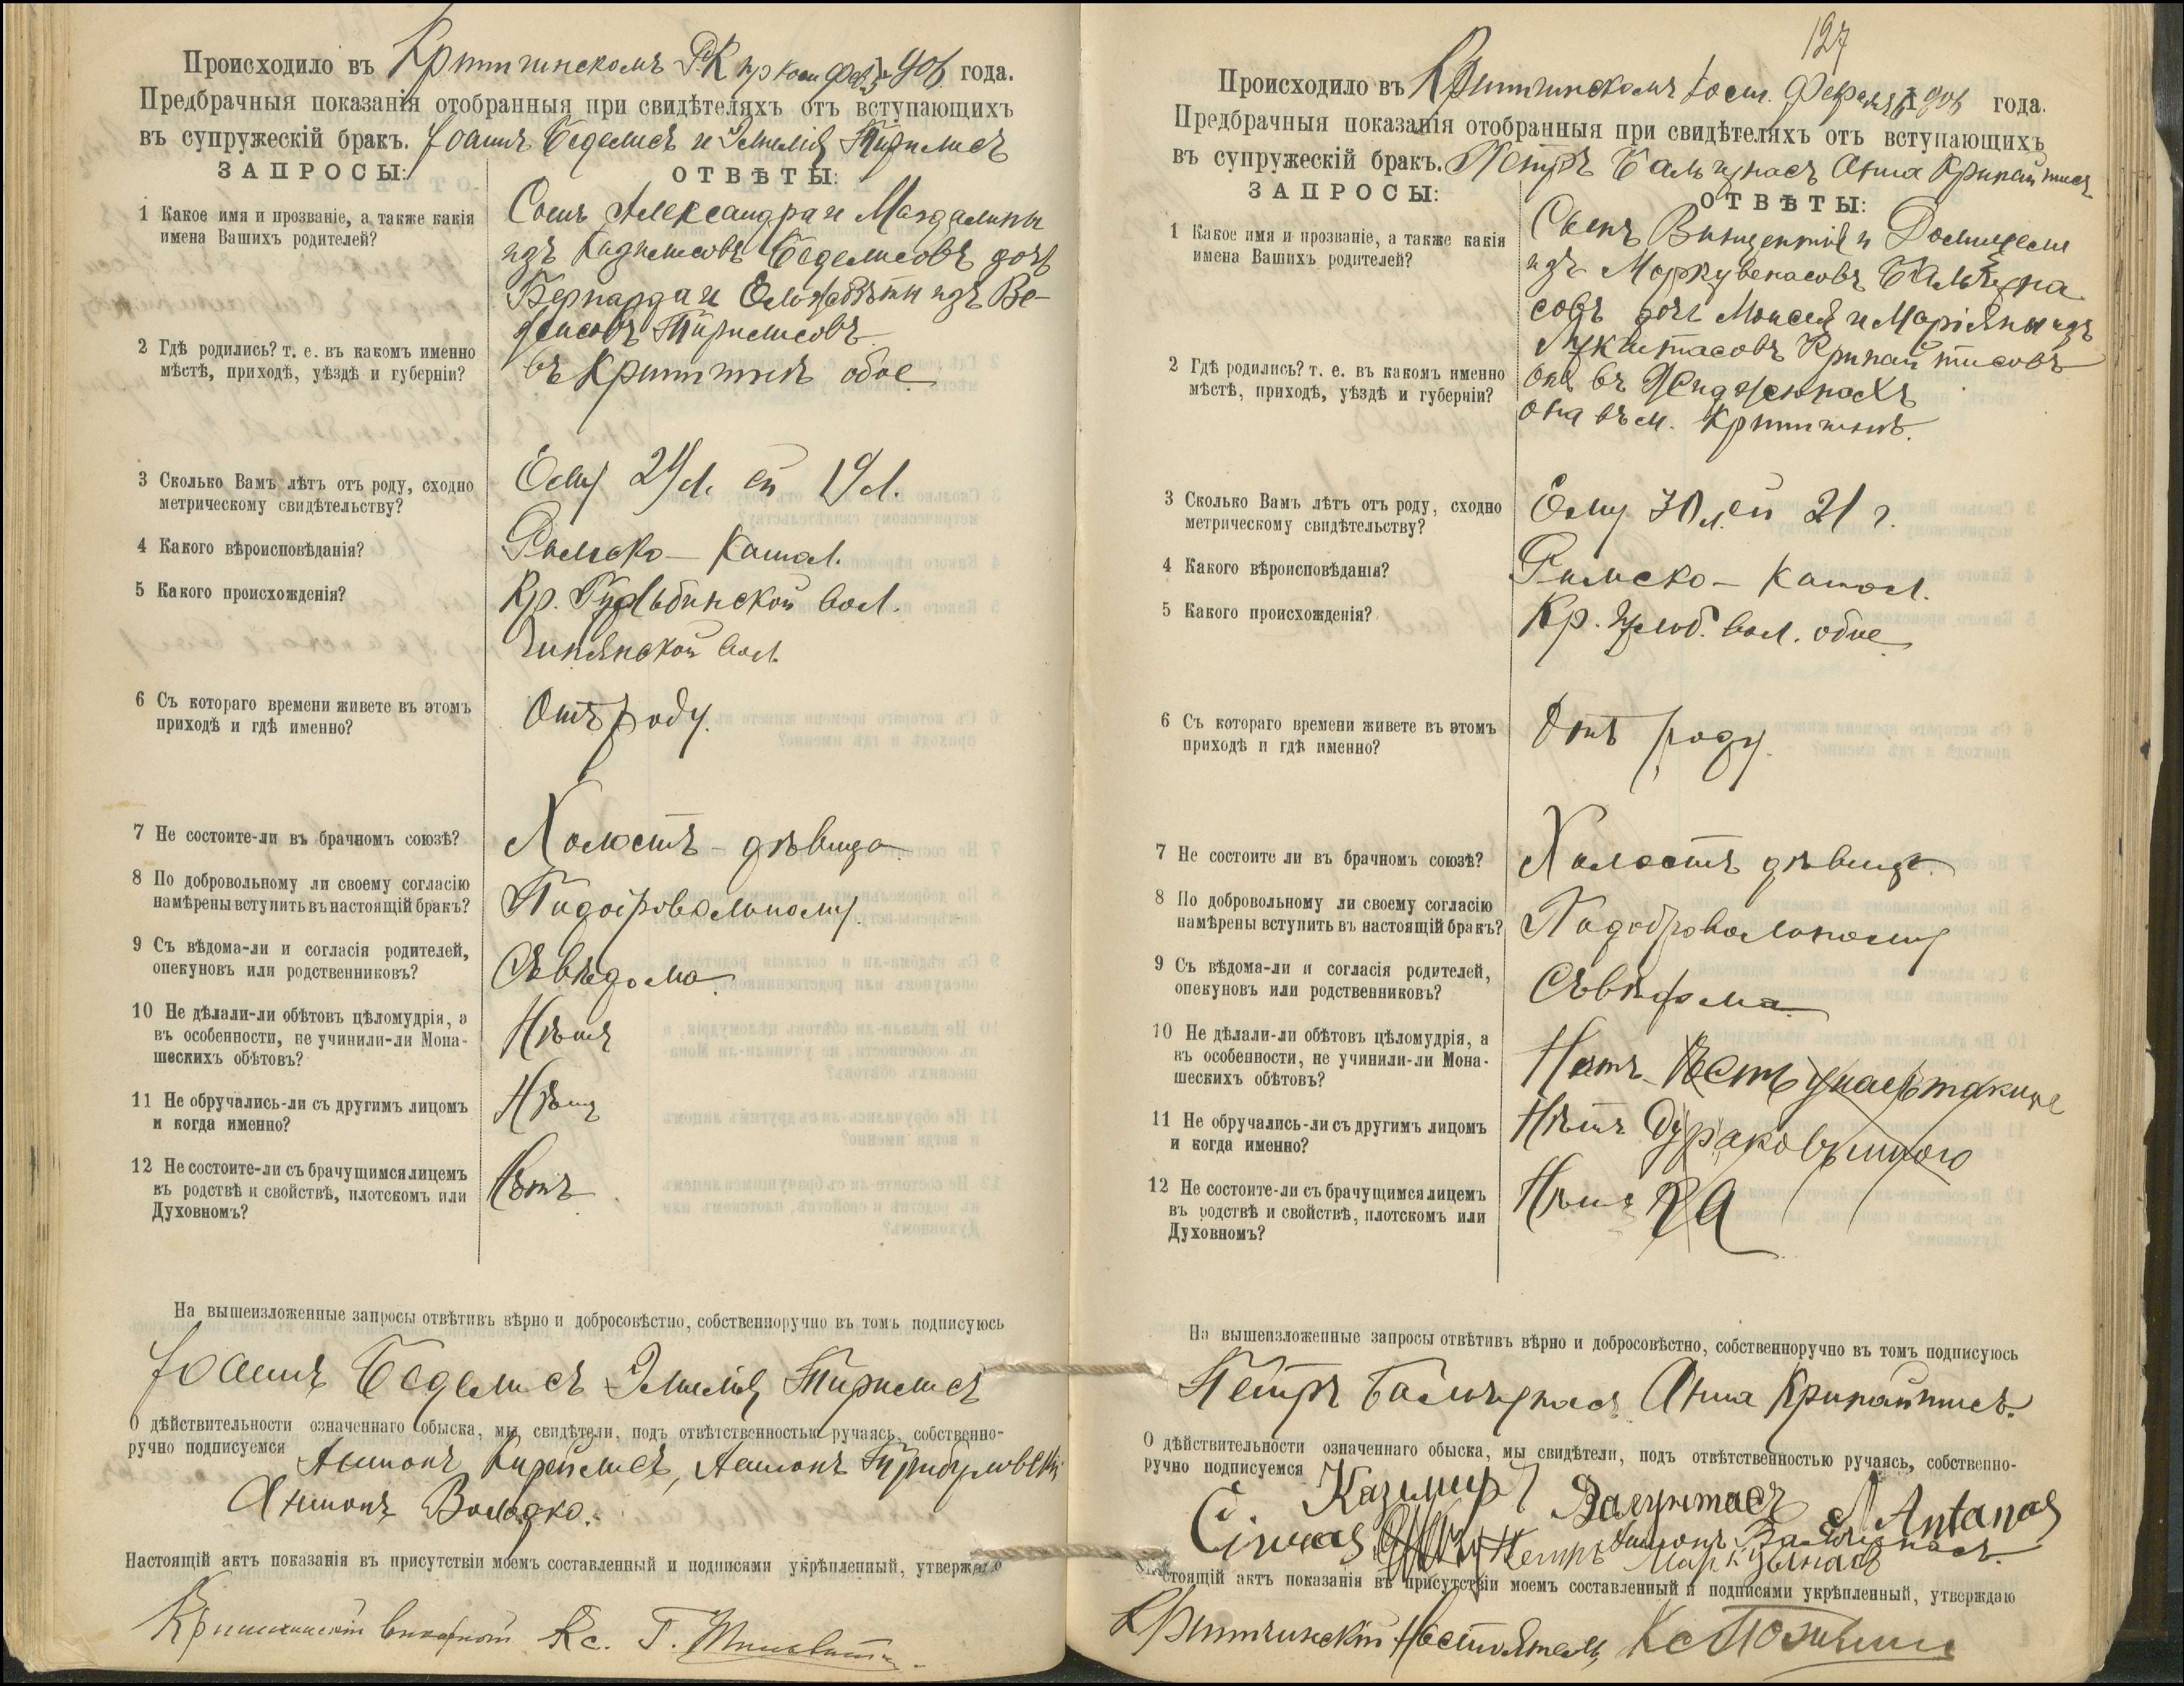 Происходило въ Криттинскомъ Р К пр кост фев 906 года.
Предбрачныя показанія отобранныя при свидѣтеляхъ отъ вступающихъ
въ супружескій бракъ. Іоаннъ Беделисъ и Эмилія Тирилисъ
ЗАПРОСЫ: ОТВѢТЫ:
1 Какое имя и прозваніе, а также какія
имена Вашихъ родителей?
Сынъ Александра и Магдалины
изъ Беделисовъ дочь
Бернарда и изъ Ве-
2 Гдѣ родились? т. е. въ какомъ именно
мѣстѣ, приходѣ, уѣздѣ и губерніи?
въ Криттинѣ обое
3 Сколько Вамъ лѣтъ отъ роду, сходно
метрическому свидѣтельству?
Ему л. ей 19 л.
4 Какого вѣроисповѣданія?
Римско-катол.
5 Какого происхожденія?
Кр. вол.
вол.
6 Съ котораго времени живете въ этомъ
приходѣ и гдѣ именно?
Отъ роду.
7 Не состоите-ли въ брачномъ союзѣ?
Холостъ - дѣвица
8 По добровольному ли своему согласію
намѣрены вступить въ настоящій бракъ?
По добровольному.
9 Съ вѣдома-ли и согласія родителей,
опекуновъ или родственниковъ?
Съ вѣдома
10 Не дѣлали-ли обѣтовъ цѣломудрія, а
въ особенности, не учинили-ли Мона-
шескихъ обѣтовъ?
Нѣтъ
11 Не обручались-ли съ другимъ лицомъ
и когда именно?
Нѣтъ
12 Не состоите-ли съ брачущимся лицемъ
въ родствѣ и свойствѣ, плотскомъ или
Духовномъ?
Нѣтъ
На вышеизложенные запросы отвѣтивъ вѣрно и добросовѣстно, собственноручно въ томъ подписуюсь
Іоаннъ Беделисъ Эмилія Тирилисъ
О дѣйствительности означеннаго обыска, мы свидѣтели, подъ отвѣтственностью ручаясь, собственно-
ручно подписуемся Антонъ Антонъ
Антонъ Володко.
Настоящій актъ показанія въ присутствіи моемъ составленный и подписями укрѣпленный, утверждаю
Кс.
127
Происходило въ Криттинскомъ кост. Февраля 906 года.
Предбрачныя показанія отобранныя при свидѣтеляхъ отъ вступающихъ
въ супружескій бракъ. Петръ Бальчунасъ Анна Крипайтисъ
ЗАПРОСЫ: ОТВѢТЫ:
1 Какое имя и прозваніе, а также какія
имена Вашихъ родителей?
Сынъ Викентія и Домицели
изъ Бальчуна
совъ дочь Моисея и Маріяны изъ
Крипайтисовъ
2 Гдѣ родились? т. е. въ какомъ именно
мѣстѣ, приходѣ, уѣздѣ и губерніи?
онъ въ
она въ м. Криттинѣ.
3 Сколько Вамъ лѣтъ отъ роду, сходно
метрическому свидѣтельству?
Ему 30 л. ей 21 г.
4 Какого вѣроисповѣданія?
Римско-катол.
5 Какого происхожденія?
Кр. вол. обое
6 Съ котораго времени живете въ этомъ
приходѣ и гдѣ именно?
Отъ роду.
7 Не состоите ли въ брачномъ союзѣ?
Холостъ дѣвица.
8 По добровольному ли своему согласію
намѣрены вступить въ настоящій бракъ?
По добровольному
9 Съ вѣдома-ли и согласія родителей,
опекуновъ или родственниковъ?
Съ вѣдома
10 Не дѣлали-ли обѣтовъ цѣломудрія, а
въ особенности, не учинили-ли Мона-
шескихъ обѣтовъ?
Нѣтъ Есть у насъ такихъ
11 Не обручались-ли съ другимъ лицомъ
и когда именно?
Нѣтъ Дураковъ много
12 Не состоите-ли съ брачущимся лицемъ
въ родствѣ и свойствѣ, плотскомъ или
Духовномъ?
Нѣтъ
На вышеизложенные запросы отвѣтивъ вѣрно и добросовѣстно, собственноручно въ томъ подписуюсь
Петръ Бальчунасъ Анна Крипайтисъ.
О дѣйствительности означеннаго обыска, мы свидѣтели, подъ отвѣтственностью ручаясь, собственно-
ручно подписуемся Казимиръ Antanas
Петръ Антонъ
Настоящій актъ показанія въ присутствіи моемъ составленный и подписями укрѣпленный, утверждаю
Криттинскій Настоятель Кс